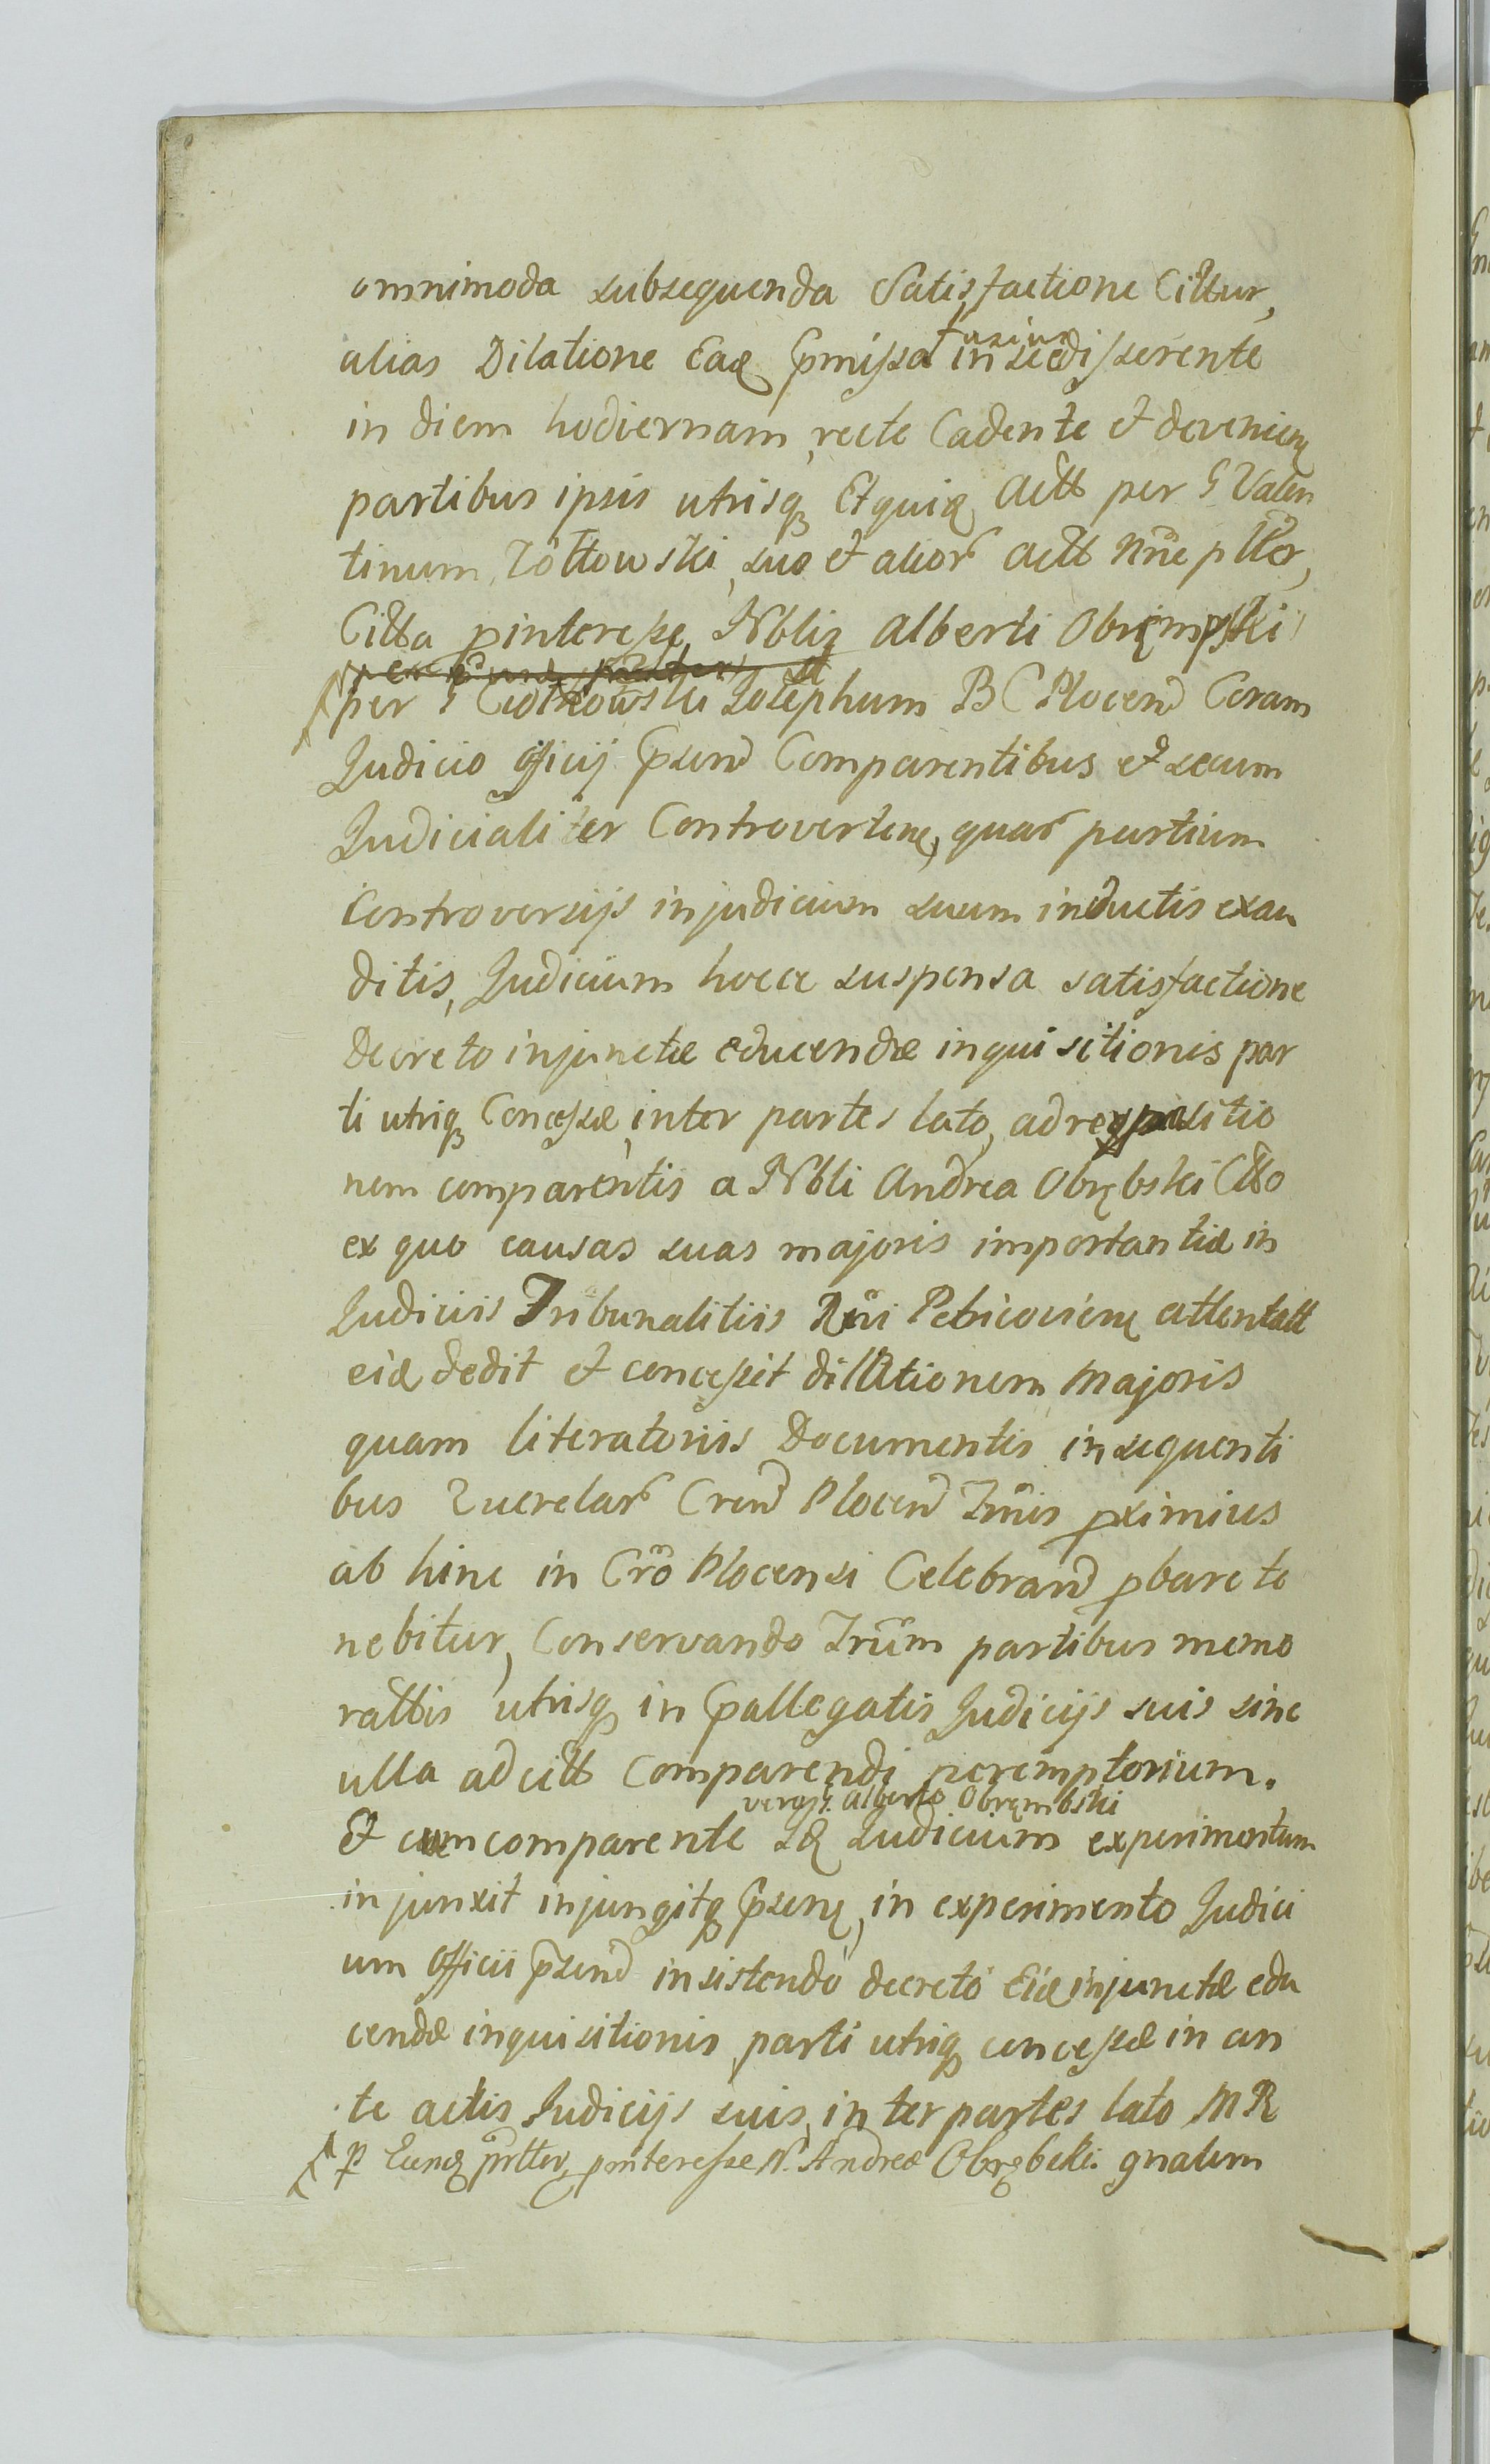 omnimoda subsequenda Satisfactione Citttur,
fusius
alias Dilatione Eaq pmissa in se disserente
in diem hodiernam, recte Cadente et devenien
partibus ipsis utrisq Et quia Actt per G Valen
tinum Żołtowski suo et alior Actt nne
Citta p interesse Nblis Alberti Obrępski
per G Josephum B C Plocen Coram
Judicio Officij psen Comparentibus et secum
Judicialiter Controverten, quar partium
Controversijs in judicium suum inductis exau
ditis, Judicium hocce suspensa satisfactione
Decreto injunctæ educendæ inquisitionis par
ti utriq Concessæ inter partes lato, ad
nem comparentis a Nbli Andrea Obrębski Ctto
ex quo causas suas majoris importantiæ in
Judiciis Tribunalitiis Rni Petricovien attentatt
eid dedit et concessit dillationem majoris
quam literatoriis Documentis in sequenti
bus Querelar Cren Plocen Tmis pximius
ab hinc in Cro Plocensi Celebrand pbare te
nebitur, Conservando Trum partibus memo
rattis utrisq in pallegatis Judicijs suis sine
ulla ad citt Comparendi peremptorium.
vero G. Alberto Obrębski
Et cum comparente Judicium experimentum
injunxit injungitq psen, in experimento Judici
um Officii psen insistendo decreto Eid injunctæ edu
cendæ inquisitionis parti utriq concessæ in an
te actis Judicijs suis, inter partes lato M R
p Eund p interesse N. Andreæ Obrębski gnalem